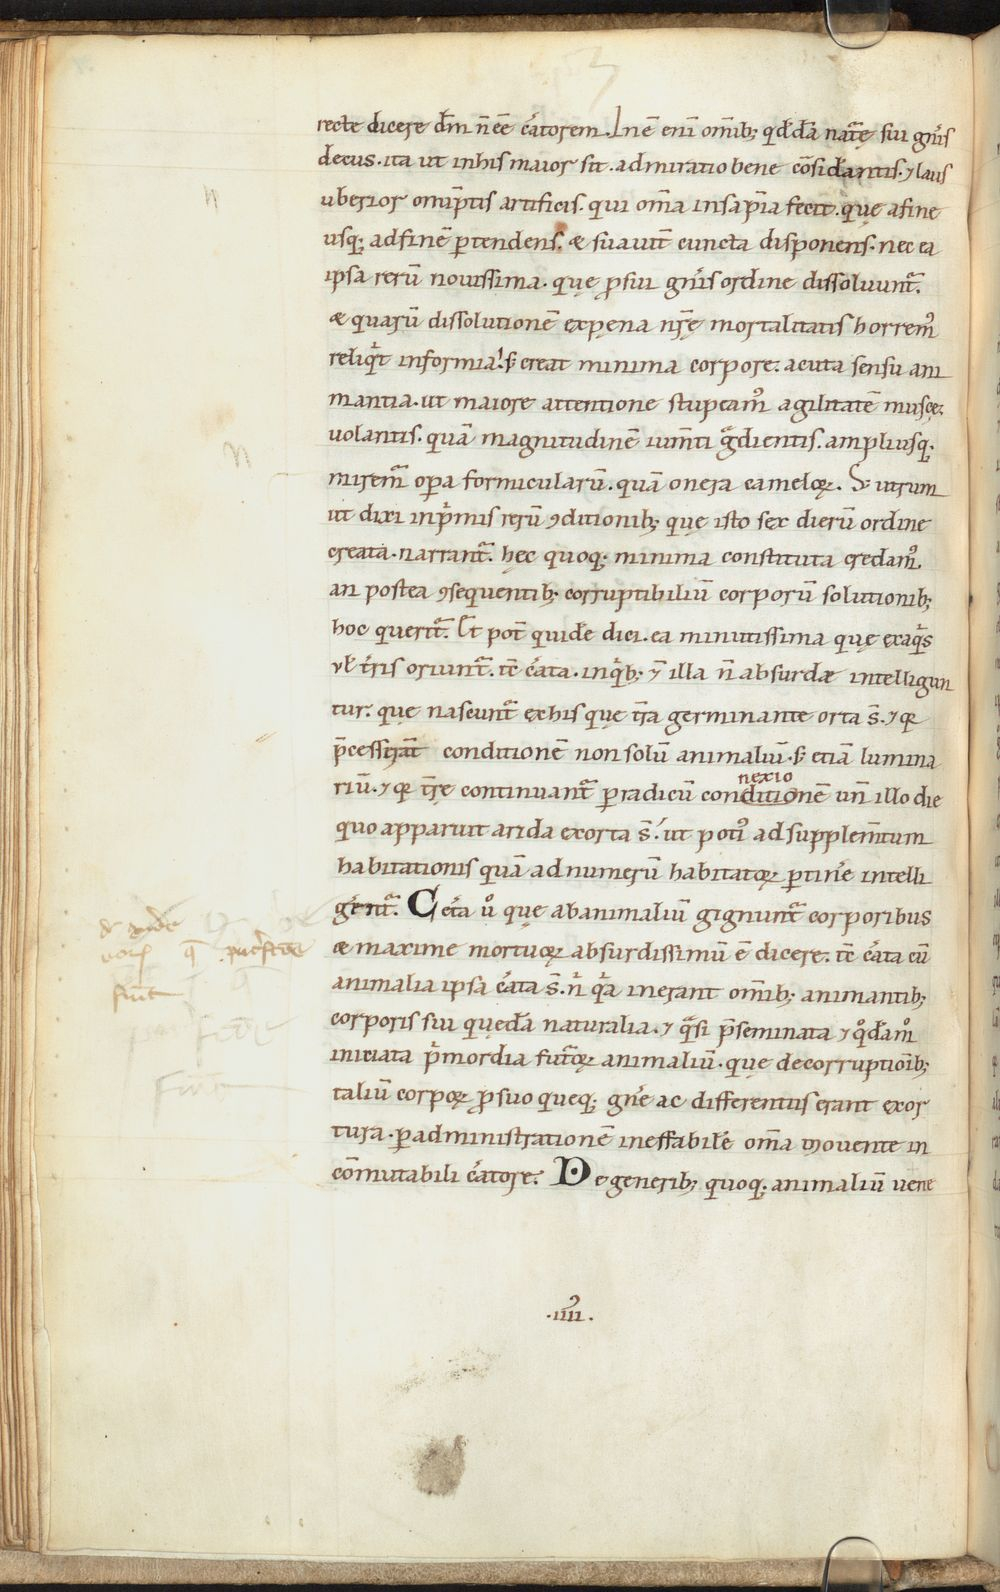 recte dicere dm̄ n̄ eē c̄atorem. Inē eni om̄ib; qd̄dā nat̄ę sui gn̄is
decus. ita ut inhis maior sit. admiratio bene cōsid̄antis. ⁊ laus
uberior omip̄tis artificis. qui om̄a insap̄ia fecit. quę afine
usq; adfinē ꝑtendens. & suauit̄ cuncta disponens. nec ea
ipsa rerū nouissima. quę ꝓsui gn̄is ordine dissoluunt̄.
& quarū dissolutionē expena nr̄ę mortalitatis horrem᷒
reliq̄t informia! s; creat minima corpore. acuta sensu ani
mantia. ut maiore attentione stupeam᷒ agilitatē muscę
uolantis. quā magnitudinē ium̄ti ḡdientis. ampliusq;
mirem̄ oꝑa formicularū. quā onera cameloꝝ. S; utrum
ut dixi inp̄mis rerū ꝯditionib; quę isto sex dierū ordine
creata. narrant̄. hęc quoq; minima constituta credam᷒.
an postea ꝯsequentib; corruptibiliū corporū solutionib;
hoc querit̄. Et pot̄ quidē dici. ea minutissima quę exaq̄s
vl̄ t̄ris oriunt̄. tc̄ c̄ata. inq̄b; ⁊ illa n̄ absurdæ intelligun
tur. quę nascunt̄ exhis quę t̄ra germinante orta s̄. ⁊ q̄
p̄cesserat̄ conditionē non solū animaliū. s; etiā lumina
riū. ⁊ q̄ t̄rę continuant̄ ꝑradicū conditionē un̄ illo die
nexio
quo apparuit arida exorta s̄. ut poti᷒ ad supplem̄tum
habitationis quā ad numerū habitatoꝝ ꝑtinēe intelli
gant̄. Cet̄a u̾o que abanimaliū gignunt̄ corporibus
& maxime mortuoꝝ absurdissimū ē dicere. tc̄ c̄ata cū
animalia ipsa c̄ata s̄. n̄ q̄a inerant om̄ib; animantib;
corporis sui quędā naturalia. ⁊ q̄si p̄seminata ⁊ q̊dām̊
iniciata p̄mordia fut̄oꝝ animaliū. quę decorruptioīb;
taliū corpoꝝ ꝓsuo queq; gn̄e ac differentiis erant exor
tura. ꝑadministrationē ineffabilē om̄a mouente in
cōmutabili c̄atore. De generib; quoq; animaliū uene
.iiii.